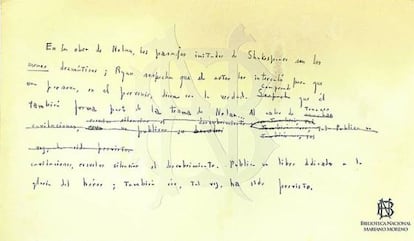 En la obra de Nolan, los pasajes imitados de Shakespeare son los
menos dramáticos; Ryan sospecha que el autor los intercaló para que
una persona, en el porvenir, diera con la verdad. Comprende
sospecha que él
también forma parte de la trama de Nolan... Al cabo de tenaces
cavilaciones, resuelve silenciar el descubrimiento
publicar un
cavilaciones, resuelve silenciar el descubrimiento. Publica un libro dedicado a la
gloria del héroe; también eso, tal vez, ha sido previsto.
BIBLIOTECA NACIONAL
MARIANO MORENO